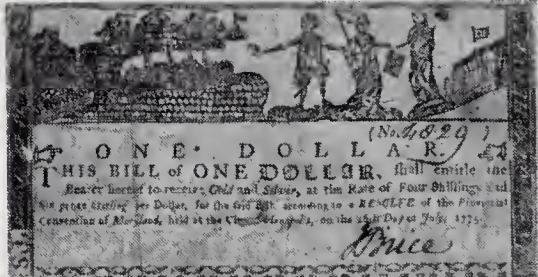 (No. 4829)
ONE DOLLAR.
THIS BILL of ONE DOLLAR, shall entitle the
Bearer hereof to receive, Gold and Silver, at the Rate of Four Shillings and
Six pence sterling per Dollar, for the said Bill, according to a RESOLVE of the Provincial
Convention of Maryland, held at the City of Annapolis, on the Day of July, 1775.
Brice